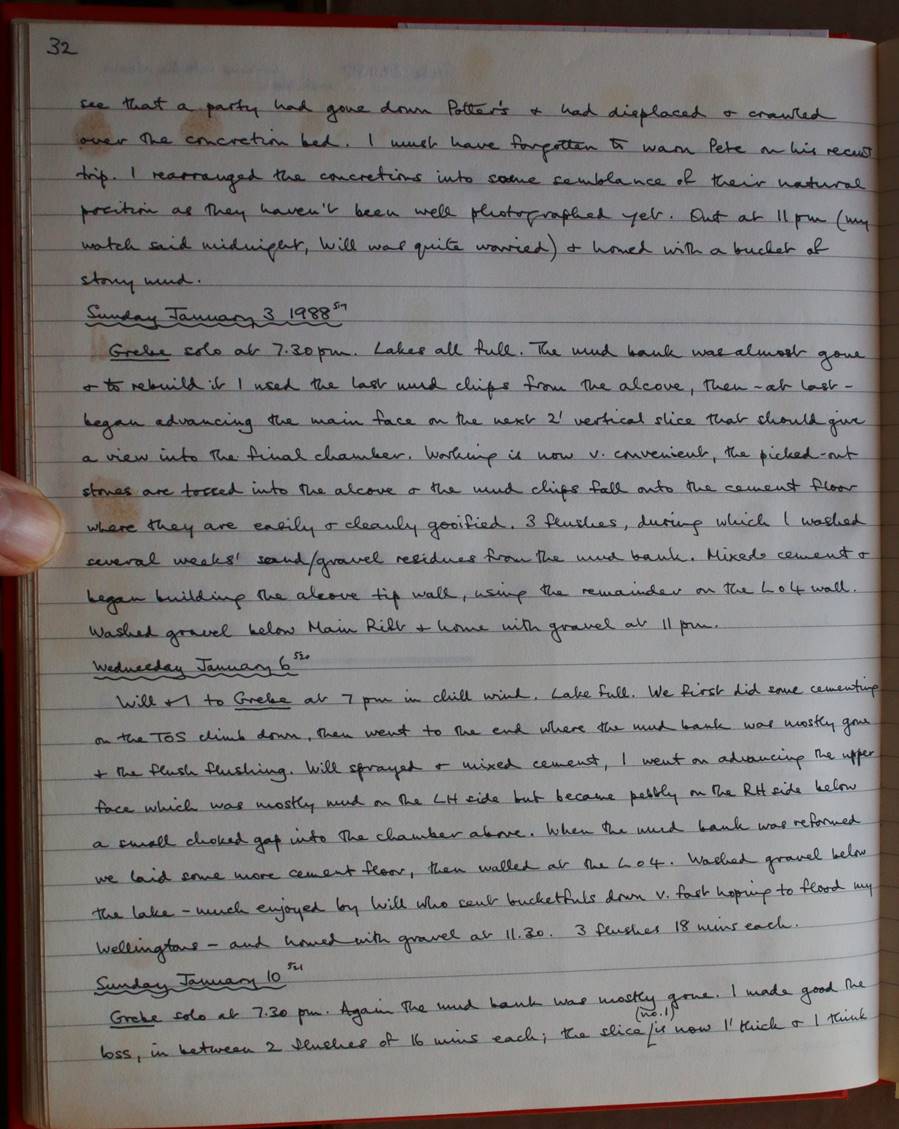 32
see that a party had gone down Potter's & had displaced & crawled
over the concretion bed. I must have forgotten to warn Pete on his recent
trip. I rearranged the concretions into some semblance of their natural
position as they haven't been well photographed yet. Out at 11 pm (my
watch said midnight, Will was quite worried) & homed with a bucket of
stony mud.
Sunday January 3 1988 519
Grebe solo at 7.30 pm. Lakes all full. The mud bank was almost gone
& to rebuild it I used the last mud chips from the alcove, then - at last -
began advancing the main face on the next 2' vertical slice that should give
a view into the final chamber. Working is now v. convenient, the picked-out
stones are tossed into the alcove & the mud chips fall onto the cement floor
where they are easily & cleanly gooified. 3 flushes, during which I washed
several weeks' sand/gravel residues from the mud bank. Mixed cement &
began building the alcove tip wall, using the remainder on the L04 wall.
Washed gravel below Main Rift & home with gravel at 11 pm.
Wednesday January 6 520
Will & I to Grebe at 7 pm in chill wind. Lake full. We first did some cementing
on the TOS climb down, then went to the end where the mud bank was mostly gone
& the flush flushing. Will sprayed & mixed cement, I went on advancing the upper
face which was mostly mud on the LH side but became pebbly on the RH side below
a small choked gap into the chamber above. When the mud bank was reformed
we laid some more cement floor, then walled at the L04. Washed gravel below
the lake - much enjoyed by Will who sent bucketfuls down v. fast hoping to flood my
Wellingtons - and homed with gravel at 11.30. 3 flushes 18 mins each.
Sunday January 10 521
Grebe solo at 7.30 pm. Again the mud bank was mostly gone. I made good the
loss, in between 2 flushes of 16 mins each; the slice (no.1) is now 1' thick & I think